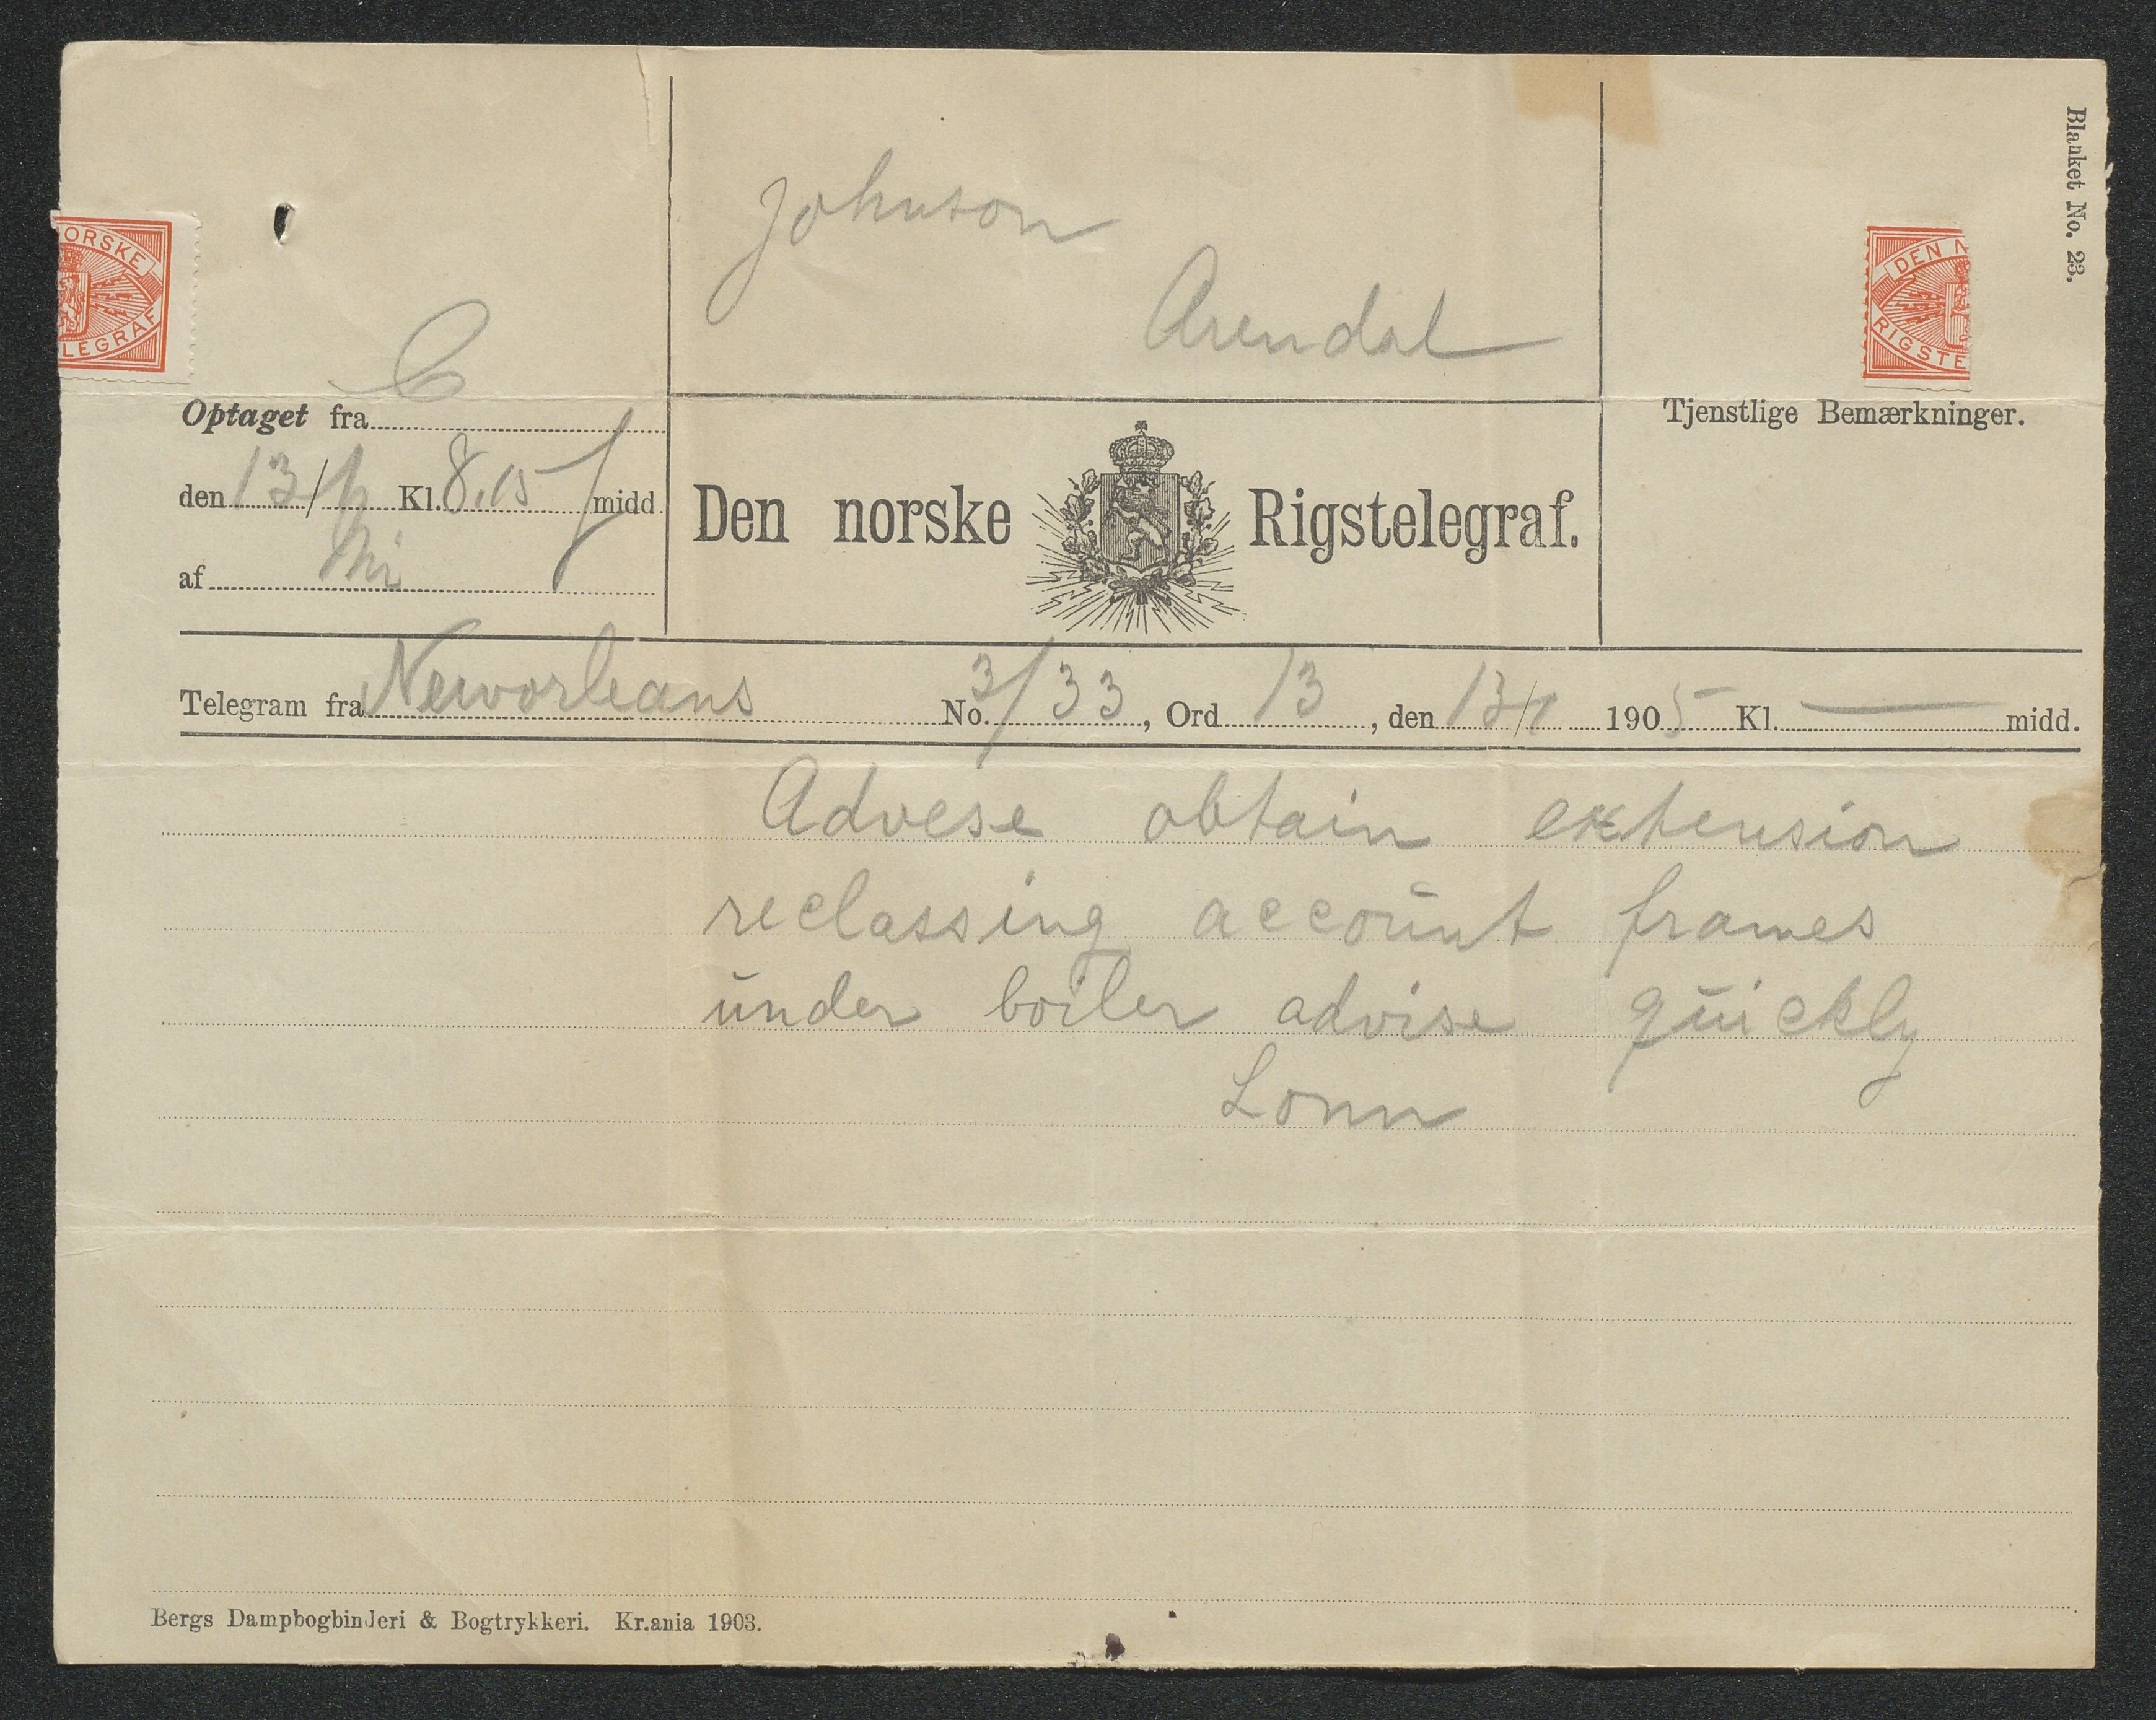 Blanket No. 23.
Johnson
Arendal
ORSKE
LEGRAF
DEN N
RIGSTE
Optaget fra C
den 13/1 Kl. 8.15 f midd.
af
Tjenstlige Bemærkninger.
Den norske Rigstelegraf.
Telegram fra Neworleans No. 3/33, Ord 13, den 13/1 1905 Kl. — midd.
Advese obtain extension
reclassing account frames
under boiler advise quickly
Lonn
Bergs Dampbogbinderi & Bogtrykkeri. Kr.ania 1903.